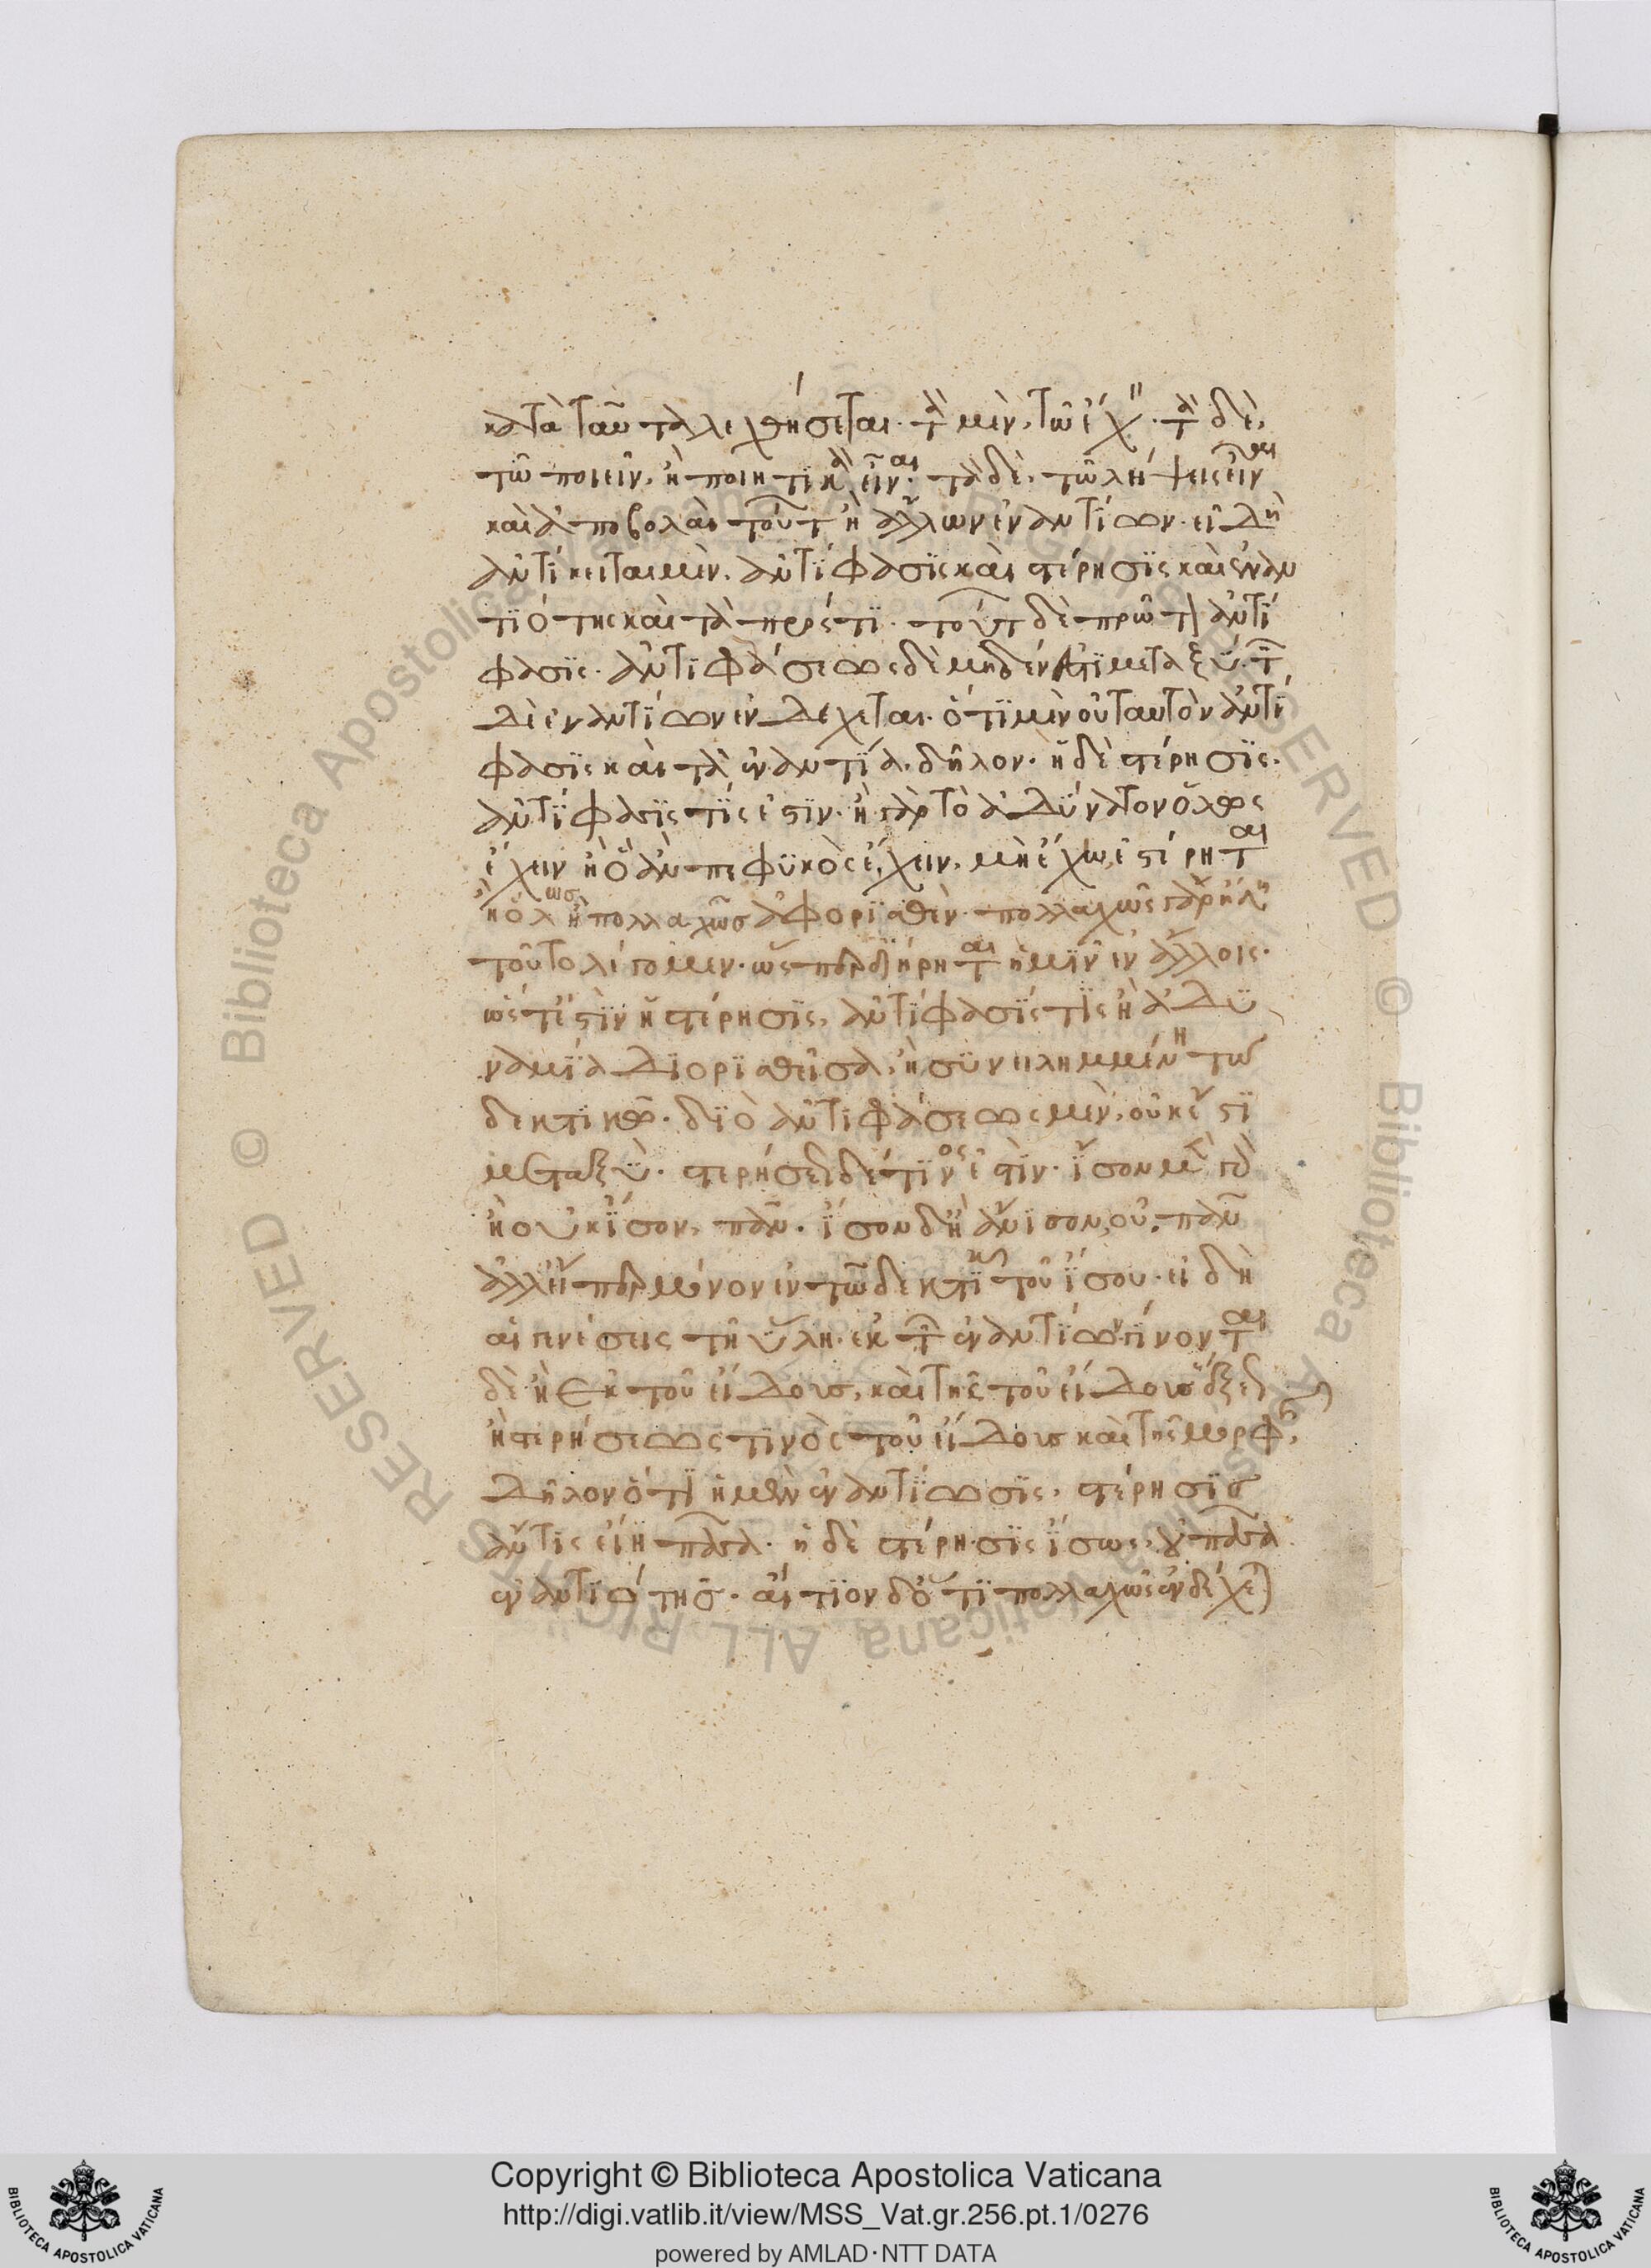 κατὰ ταῦτα λεχθήσεται· τὰ μὲν, τῶ ἔχειν· τὰ δὲ,
τῶ ποιεῖν, ἢ ποιητικὰ εἶναι· τὰ δὲ, τῶ λήψεις εἶναι
καὶ ἀποβολαὶ τούτων ἢ ἄλλων ἐναντίων· εἰ δὴ
ἀντίκειται μὲν, ἀντίφασις καὶ στέρησις καὶ ἐναν
τιότης καὶ τὰ πρός τι· τούτων δὲ πρῶτον ἀντί
φασις· ἀντιφάσεως δὲ μηδέν ἐστι μεταξύ· τῶν
δὲ ἐναντίων ἐνδέχεται· ὅτι μὲν οὐ ταυτὸν ἀντί
φασις καὶ τὰ ἐναντία, δῆλον· ἡ δὲ στέρησις,
ἀντίφασίς τίς ἐστιν· ἢ γὰρ τὸ ἀδύνατον ὅλως
ἔχειν ἢ ὃ ἂν πεφυκὸς ἔχειν, μὴ ἔχῃ, ἐστέρηται
ἢ ὅλως ἢ πολλαχῶς ἀφορισθέν· πολλαχῶς γὰρ ἤδη
τοῦτο λέγομεν· ὥσπερ διήρηται ἡμῖν ἐν ἄλλοις·
ὥστ' ἐστὶν ἡ στέρησις, ἀντίφασίς τις ἢ ἀδυ
ναμία διορισθεῖσα, ἢ συνειλημμένη τῶ
δεκτικῶ· διὸ ἀντιφάσεως μὲν, οὐκ ἔστι
μεταξύ· στερήσεως δέ τινος ἐστίν· ἴσον μὲν γὰρ
ἢ οὐκ ἴσον, πᾶν· ἴσον δ' ἢ ἄνισον, οὐ πᾶν
ἀλλ' εἴπερ μόνον ἐν τῶ δεκτικῶ τοῦ ἴσου· εἰ δὴ
αἱ γενέσεις τῆ ὕλη ἐκ τῶν ἐναντίων, γίνονται
δὲ ἢ ἐκ τοῦ εἴδους, καὶ τῆς τοῦ εἴδους ἕξεως
ἢ στερήσεώς τινος τοῦ εἴδους καὶ τῆς μορφῆς,
δῆλον ὅτι ἡ μὲν ἐναντίωσις, στέρησις
ἄν τις εἴη πᾶσα· ἡ δὲ στέρησις ἴσως, οὐ πᾶσα
ἐναντιότης· αἴτιον δ' ὅτι πολλαχῶς ἐνδέχεται
Copyright © Biblioteca Apostolica Vaticana
http://digi.vatlib.it/view/MSS_Vat.gr.256.pt.1/0276
powered by AMLAD·NTT DATA